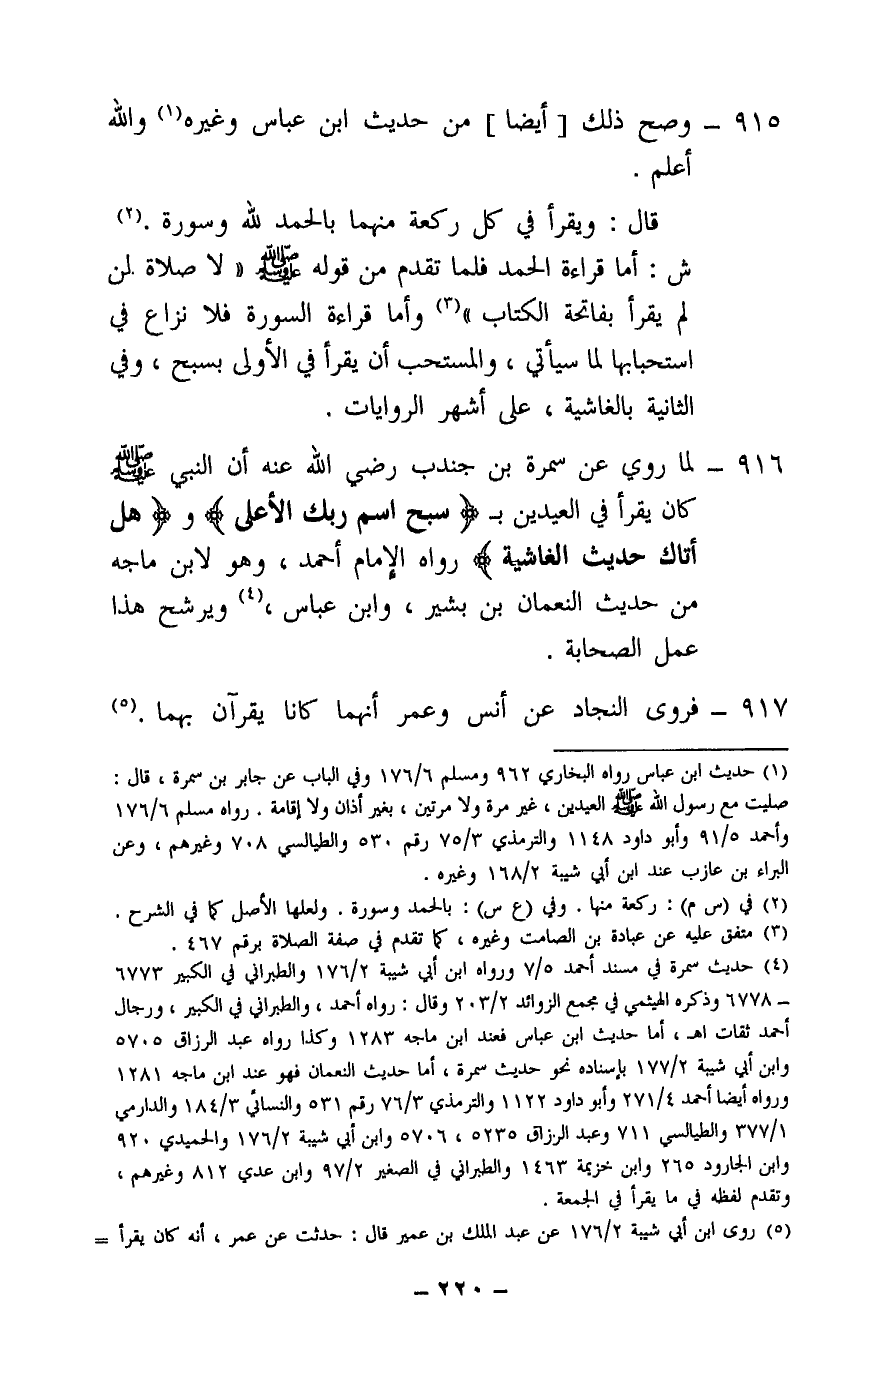 ٩١٥ – وصح ذلك [ أيضا ] من حديث ابن عباس وغيره(١) والله
أعلم .
قال : ويقرأ في كل ركعة منهما بالحمد لله وسورة .(٢)
ش : أما قراءة الحمد فلما تقدم من قوله ﷺ « لا صلاة لمن
لم يقرأ بفاتحة الكتاب »(٣) وأما قراءة السورة فلا نزاع في
استحبابها لما سيأتي ، والمستحب أن يقرأ في الأولى بسبح ، وفي
الثانية بالغاشية ، على أشهر الروايات .
٩١٦ – لما روي عن سمرة بن جندب رضي الله عنه أن النبي ﷺ
كان يقرأ في العيدين بـ ﴿ سبح اسم ربك الأعلى ﴾ و ﴿ هل
أتاك حديث الغاشية ﴾ رواه الإمام أحمد ، وهو لابن ماجه
من حديث النعمان بن بشير ، وابن عباس ،(٤) ويرشح هذا
عمل الصحابة .
٩١٧ – فروى النجاد عن أنس وعمر أنهما كانا يقرآن بهما .(٥)
(١) حديث ابن عباس رواه البخاري ٩٦٢ ومسلم ١٧٦/٦ وفي الباب عن جابر بن سمرة ، قال :
صليت مع رسول الله ﷺ العيدين ، غير مرة ولا مرتين ، بغير أذان ولا إقامة . رواه مسلم ١٧٦/٦
وأحمد ٩١/٥ وأبو داود ١١٤٨ والترمذي ٧٥/٣ رقم ٥٣٠ والطيالسي ٧٠٨ وغيرهم ، وعن
البراء بن عازب عند ابن أبي شيبة ١٦٨/٢ وغيره .
(٢) في (س م) : ركعة منها . وفي (ع س) : بالحمد وسورة . ولعلها الأصل كما في الشرح .
(٣) متفق عليه عن عبادة بن الصامت وغيره ، كما تقدم في صفة الصلاة برقم ٤٦٧ .
(٤) حديث سمرة في مسند أحمد ٧/٥ ورواه ابن أبي شيبة ١٧٦/٢ والطبراني في الكبير ٦٧٧٣
– ٦٧٧٨ وذكره الهيثمي في مجمع الزوائد ٢٠٣/٢ وقال : رواه أحمد ، والطبراني في الكبير ، ورجال
أحمد ثقات اهـ ، أما حديث ابن عباس فعند ابن ماجه ١٢٨٣ وكذا رواه عبد الرزاق ٥٧٠٥
وابن أبي شيبة ١٧٧/٢ بإسناده نحو حديث سمرة ، أما حديث النعمان فهو عند ابن ماجه ١٢٨١
ورواه أيضا أحمد ٢٧١/٤ وأبو داود ١١٢٢ والترمذي ٧٦/٣ رقم ٥٣١ والنسائي ١٨٤/٣ والدارمي
٣٧٧/١ والطيالسي ٧١١ وعبد الرزاق ٥٢٣٥ ، ٥٧٠٦ وابن أبي شيبة ١٧٦/٢ والحميدي ٩٢٠
وابن الجارود ٢٦٥ وابن خزيمة ١٤٦٣ والطبراني في الصغير ٩٧/٢ وابن عدي ٨١٢ وغيرهم ،
وتقدم لفظه في ما يقرأ في الجمعة .
(٥) روى ابن أبي شيبة ١٧٦/٢ عن عبد الملك بن عمير قال : حدثت عن عمر ، أنه كان يقرأ =
– ٢٢٠ –